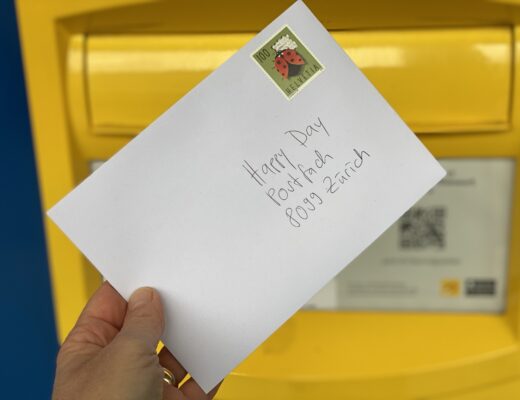 100
HELVETIA
Happy Day
Postfach
8099 Zürich